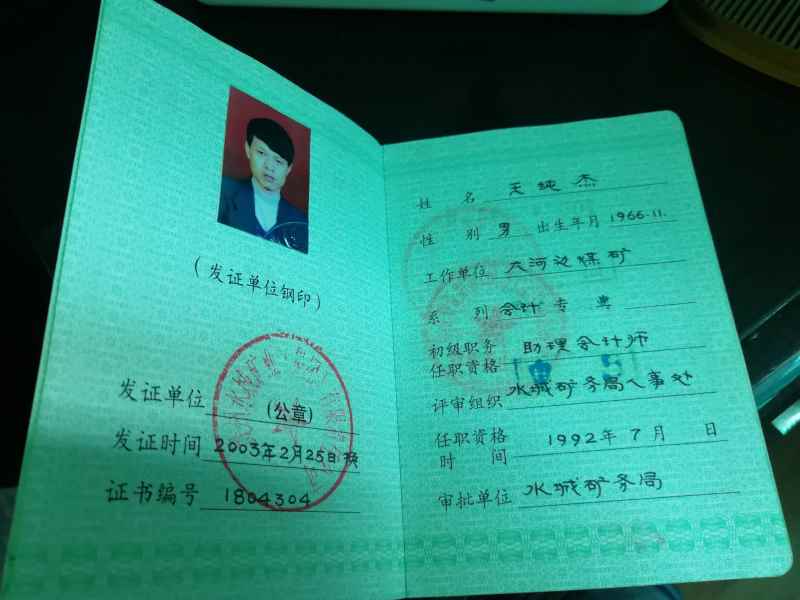 (发证单位钢印)
发证单位 (公章)
发证时间 2003年2月25日换
证书编号 1804304
姓 名 王纯杰
性 别 男 出生年月 1966.11.
工作单位 大河边煤矿
系 列 会计 专 业
初级职务 助理会计师
任职资格
评审组织 水城矿务局人事处
任职资格 1992年7月 日
时 间
审批单位 水城矿务局